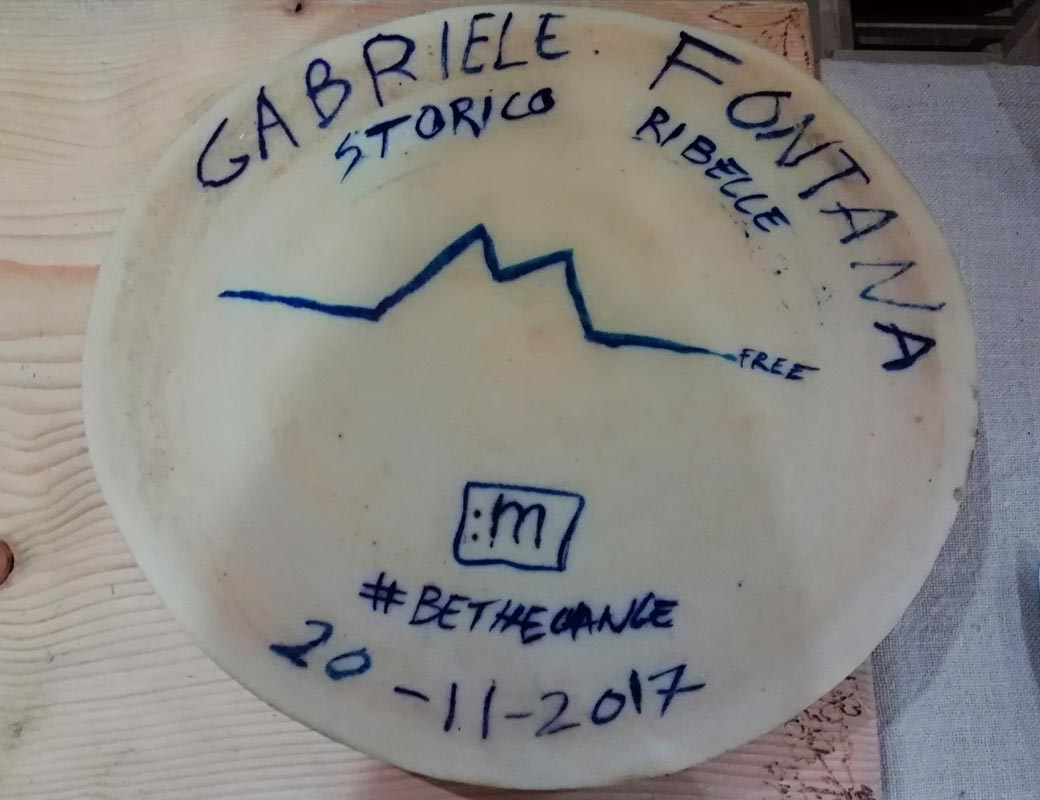 GABRIELE FONTANA
STORICO RIBELLE
FREE
:m
#BETHECANGE
20-11-2017